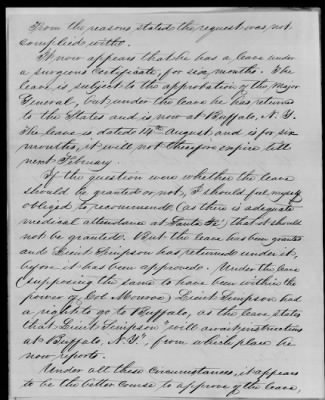 From the reasons stated the request was not
complied with.
It now appears that he has a leave under
a surgeons certificate, for six months. The
leave is subject to the approbation of the Major
General, but under the leave he has returned
to the States and is now at Buffalo, N.Y.
The leave is dated 14th August and is for six
months, it will not therefore expire till
next February.
If the question were whether the leave
should be granted or not, I should feel myself
obliged to recommend (as there is adequate
medical attendance at Santa Fé) that it should
not be granted. But the leave has been granted
and Lieut Simpson has returned under it,
before it has been approved. Under the leave
supposing the same to have been within the
power of Col Monroe) Lieut Simpson had
a right to go to Buffalo, as the leave states
that Lieut Simpson "will await instructions
at Buffalo, N.Y.", from which place he
now reports.
Under all these circumstances, it appears
to be the better course to approve of the leave,